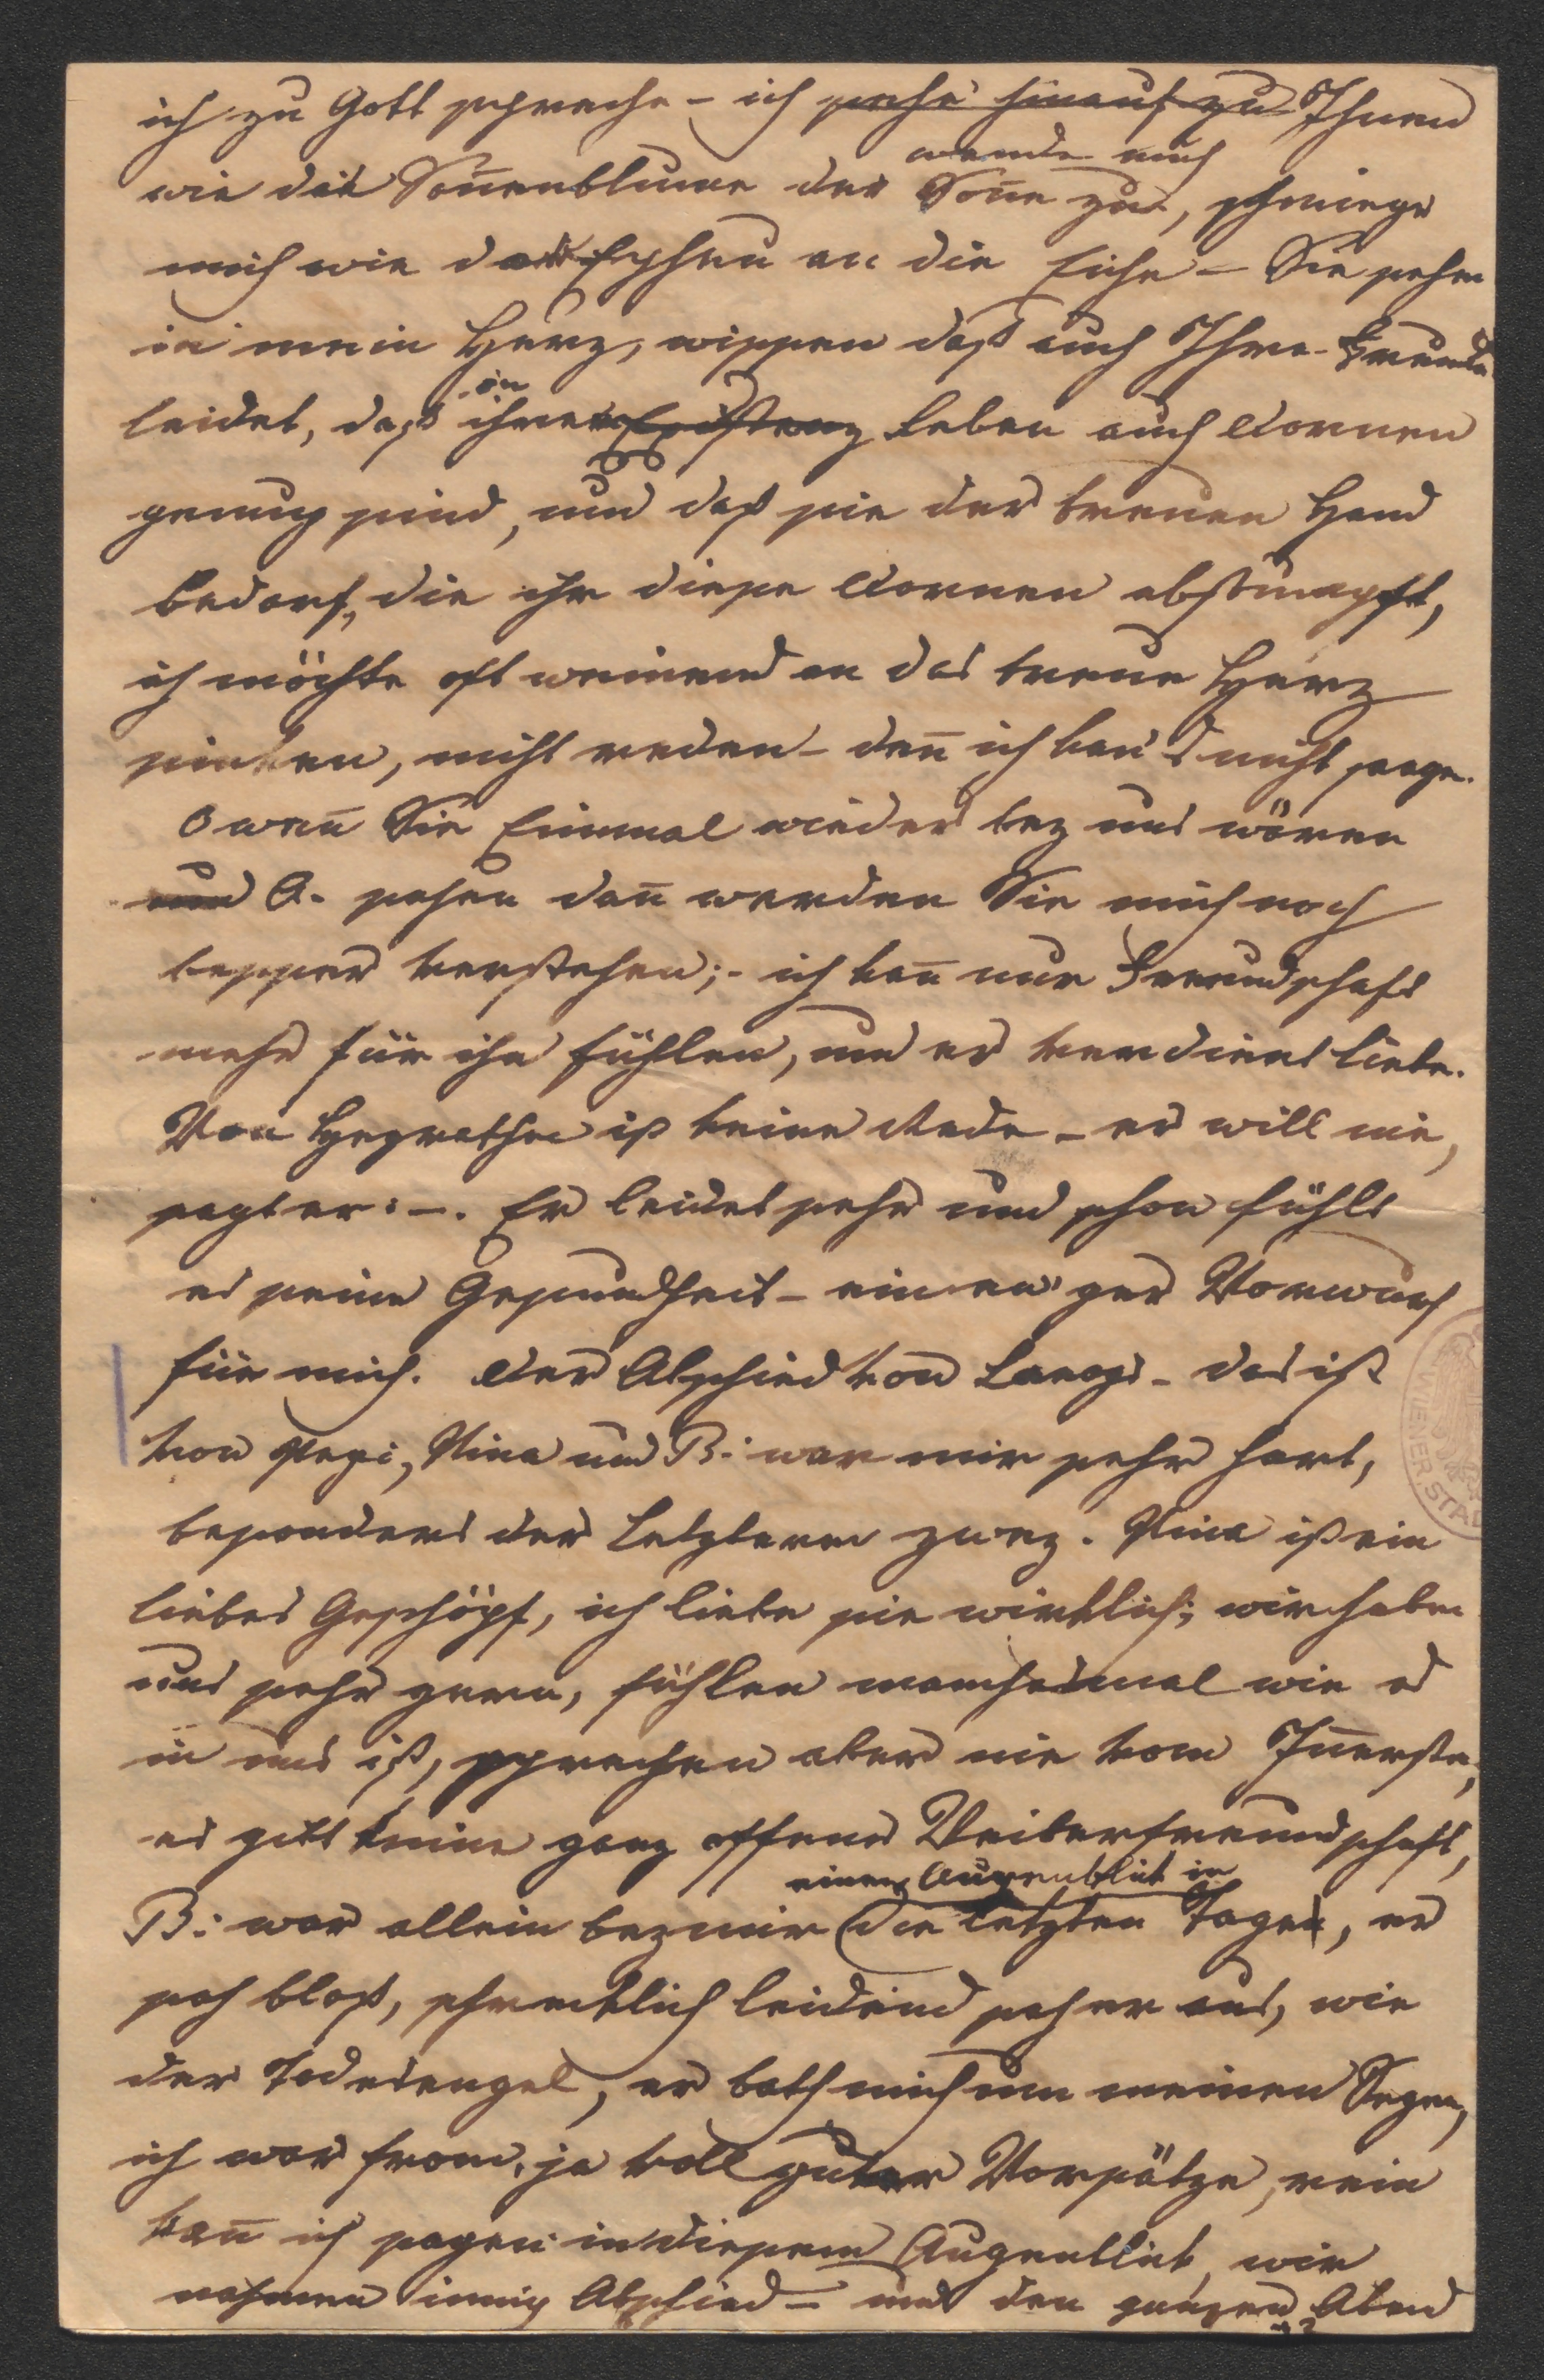 ich zu Gott spreche – ich sehe hinauf zu Ihnen
wende mich
wie die Soñenblume der Soñe zu, schmiege
mich wie das Epheu an die Eiche – Sie sehen
in mein Herz, wissen daß auch Ihre Freundin
in
leidet, daß ihrer Existenz Leben auch Dornen
genug sind, und daß sie der treuen Hand
bedarf, die ihr diese Dornen abstumpft,
ich möchte oft weinend an das treue Herz
sinken, nicht reden – deñ ich kañ's nicht sagen.
O weñ Sie Einmal wieder bey uns wären
und A. sehen dañ werden Sie mich noch
besser verstehen; – ich kañ nur Freundschaft
mehr für ihn fühlen, und er verdient Liebe.
Von Heyrathen ist keine Rede – er will nie,
sagt er: –. Er leidet sehr und schon fühlt
es seine Gesundheit – ein ew'ger Vorwurf
für mich. Der Abschied von – das ist
von Pepi, Nina und B: war mir sehr hart,
besonders der Letzteren zwey. Nina ist ein
liebes Geschöpf, ich liebe sie wirklich; wir haben
uns sehr gern, fühlen manchesmal wie es
in uns ist, sprechen aber nie vom Iñersten,
es gibt keine ganz offene Weiberfreundschaft,
einen Augenblick in
B: war allein bey mir die letzten Tage, er
sah blaß, schrecklich leidend sah er aus, wie
der Todesengel, er bath mich um meinen Segen,
ich war from, ja voll guter Vorsätze, rein
kañ ich sagen in diesem Augenblick, wir
nahmen innig Abschied – und den ganzen Abend
WIENER STAD